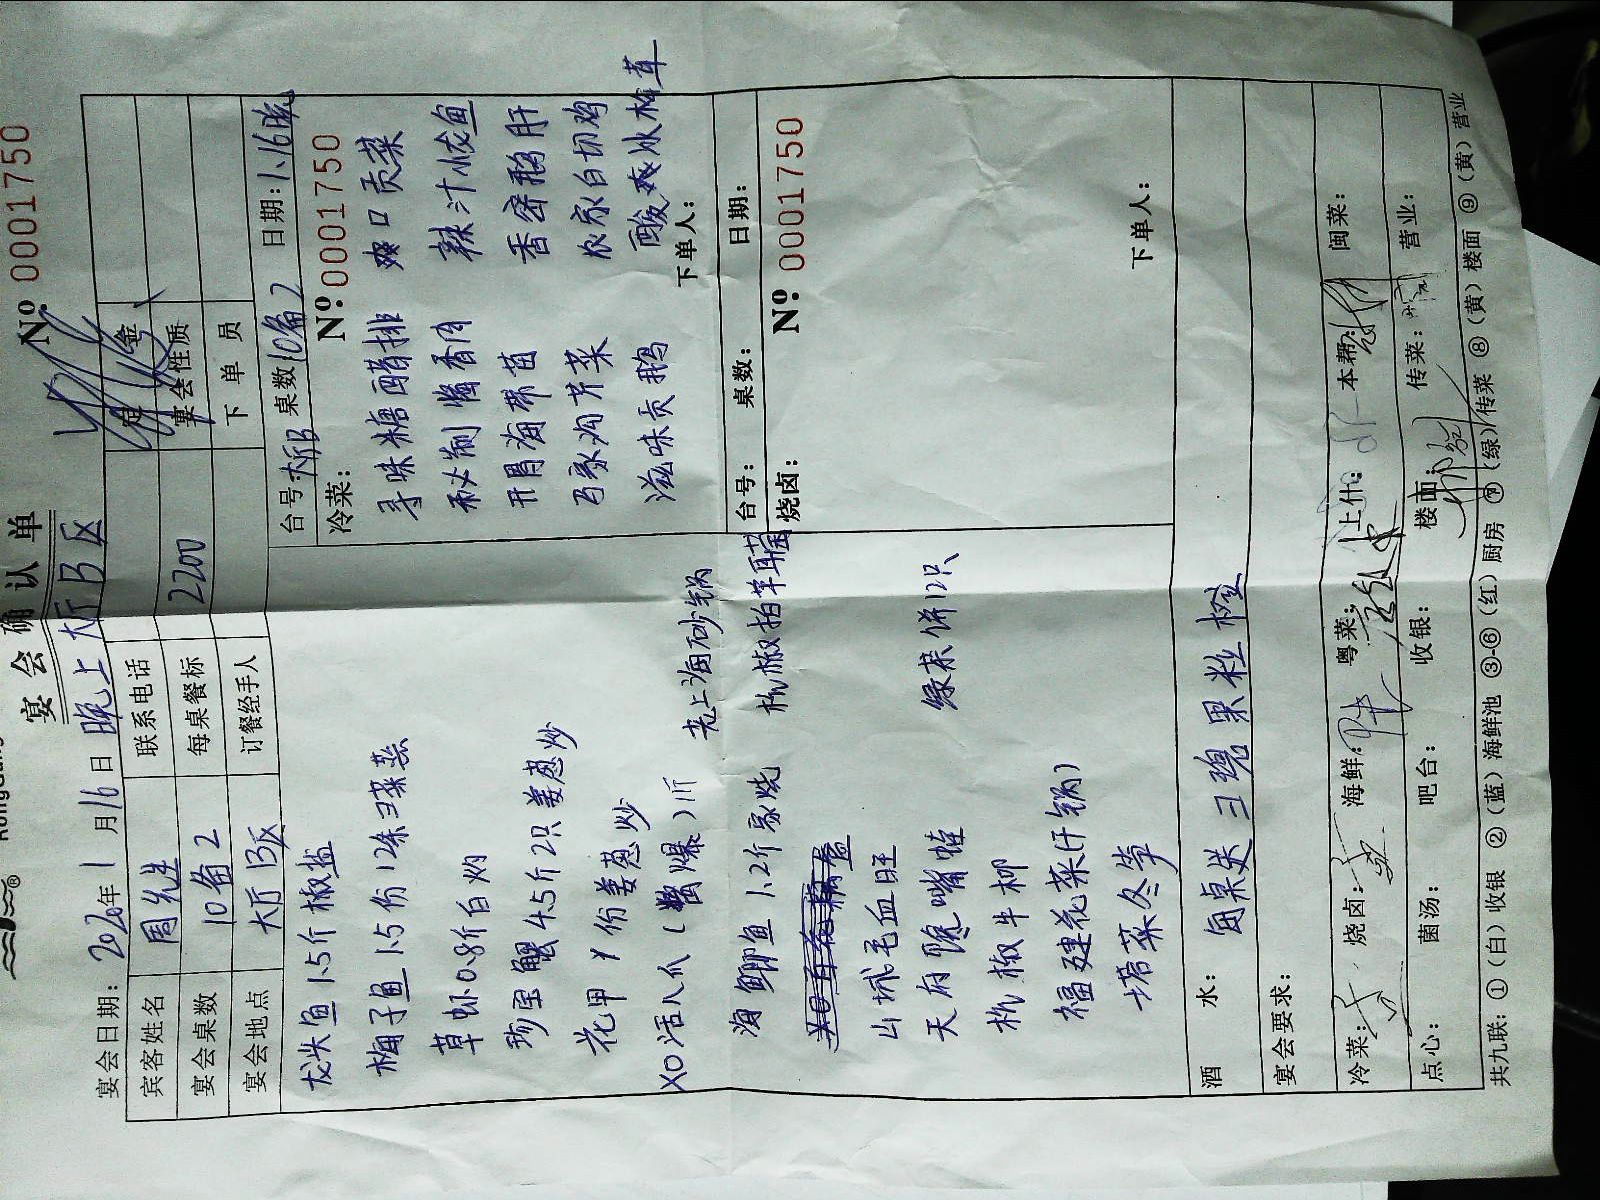 宴会确认单
№ 0001750
宴会日期：2020年1月16日 晚上 大厅B区
宾客姓名 周先生 联系电话 定金
宴会桌数 10备2 每桌餐标 2200 宴会性质
宴会地点 大厅B区 订餐经手人 下单员
龙头鱼1.5斤椒盐
梅子鱼1.5份12条 菜蒸
草虾0.8斤白灼
珍宝蟹4.5斤2只姜葱炒
花甲 份姜葱炒
XO活八爪(酱爆)1斤
老上海砂锅
海鲫鱼1.2斤家烧
杭椒拍羊
山城毛血旺
天府
绿茶饼12只
杭椒牛柳
福建花菜(干锅)
塔菜冬笋
台号 大厅B 桌数 10备2 日期：1.16晚
冷菜：
№：0001750
寻味糖醋排 爽口贡菜
秘制酱香肉 辣汁小皮鱼
开胃海带苗 香密鹅肝
马家沟芹菜 农家白切鸡
滋味贡鹅 酸爽冰 茸
下单人：
台号： 桌数： 日期：
烧卤：
№：0001750
下单人：
酒水： 每桌送 果粒橙
宴会要求：
冷菜： 烧卤： 海鲜： 粤菜： 上什： 本帮： 闽菜：
点心： 菌汤： 吧台： 收银： 楼面： 传菜： 营业：
共九联：①（白）收银 ②（蓝）海鲜池 ③-⑥（红）厨房 ⑦（绿）传菜 ⑧（黄）楼面 ⑨（黄）营业